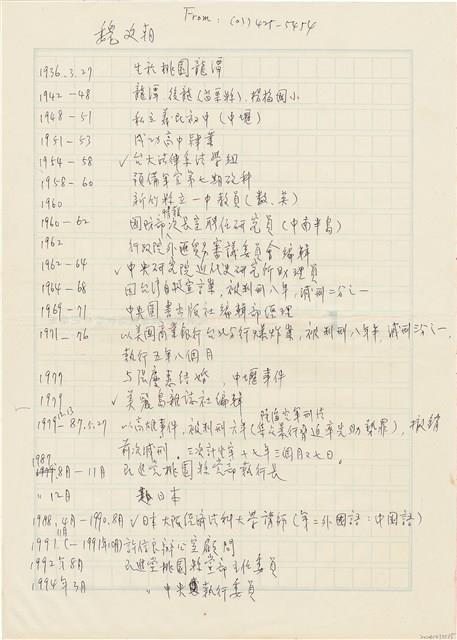 From: (03) 425-5454
魏廷朝
1936.3.27 生於桃園龍潭
1942-48 龍潭、後龍(苗栗縣)、楊梅國小
1948-51 私立義民初中(中壢)
1951-53 成功高中肄業
1954-58 ✓台大法律系法學組
1958-60 預備軍官第七期政科
1960 新竹縣立一中教員(數、英)
1960-62 國防部情報次長室聘任研究員(中南半島)
1962 行政院外匯貿易審議委員會編輯
1962-64 ✓中央研究院近代史研究所助理員
1964-68 因台灣自救宣言案,被判刑八年,減刑二分之一
1969-71 中央圖書出版社編輯部經理
1971-76 以美國商業銀行台北分行爆炸案,被判刑八年半,減刑三分之一,
執行五年八個月
1977 與張慶惠結婚,中壢事件
1979 ✓美麗島雜誌社編輯
1979.12.13-87.5.27 以高雄事件,被判刑六年(
率先助勢罪),撤銷
前次減刑。三次計坐牢十七年三個月又七日。
1987 8月-11月 民進黨桃園縣黨部執行長
〃 12月 赴日本
1988.4月-1990.8月 ✓日本大阪經濟法科大學講師(第二外國語:中国語)
1991 (-1991年10月) 許信良辦公室顧問
1992年8月 民進黨桃園縣黨部主任委員
1994年3月 〃 中央執行委員